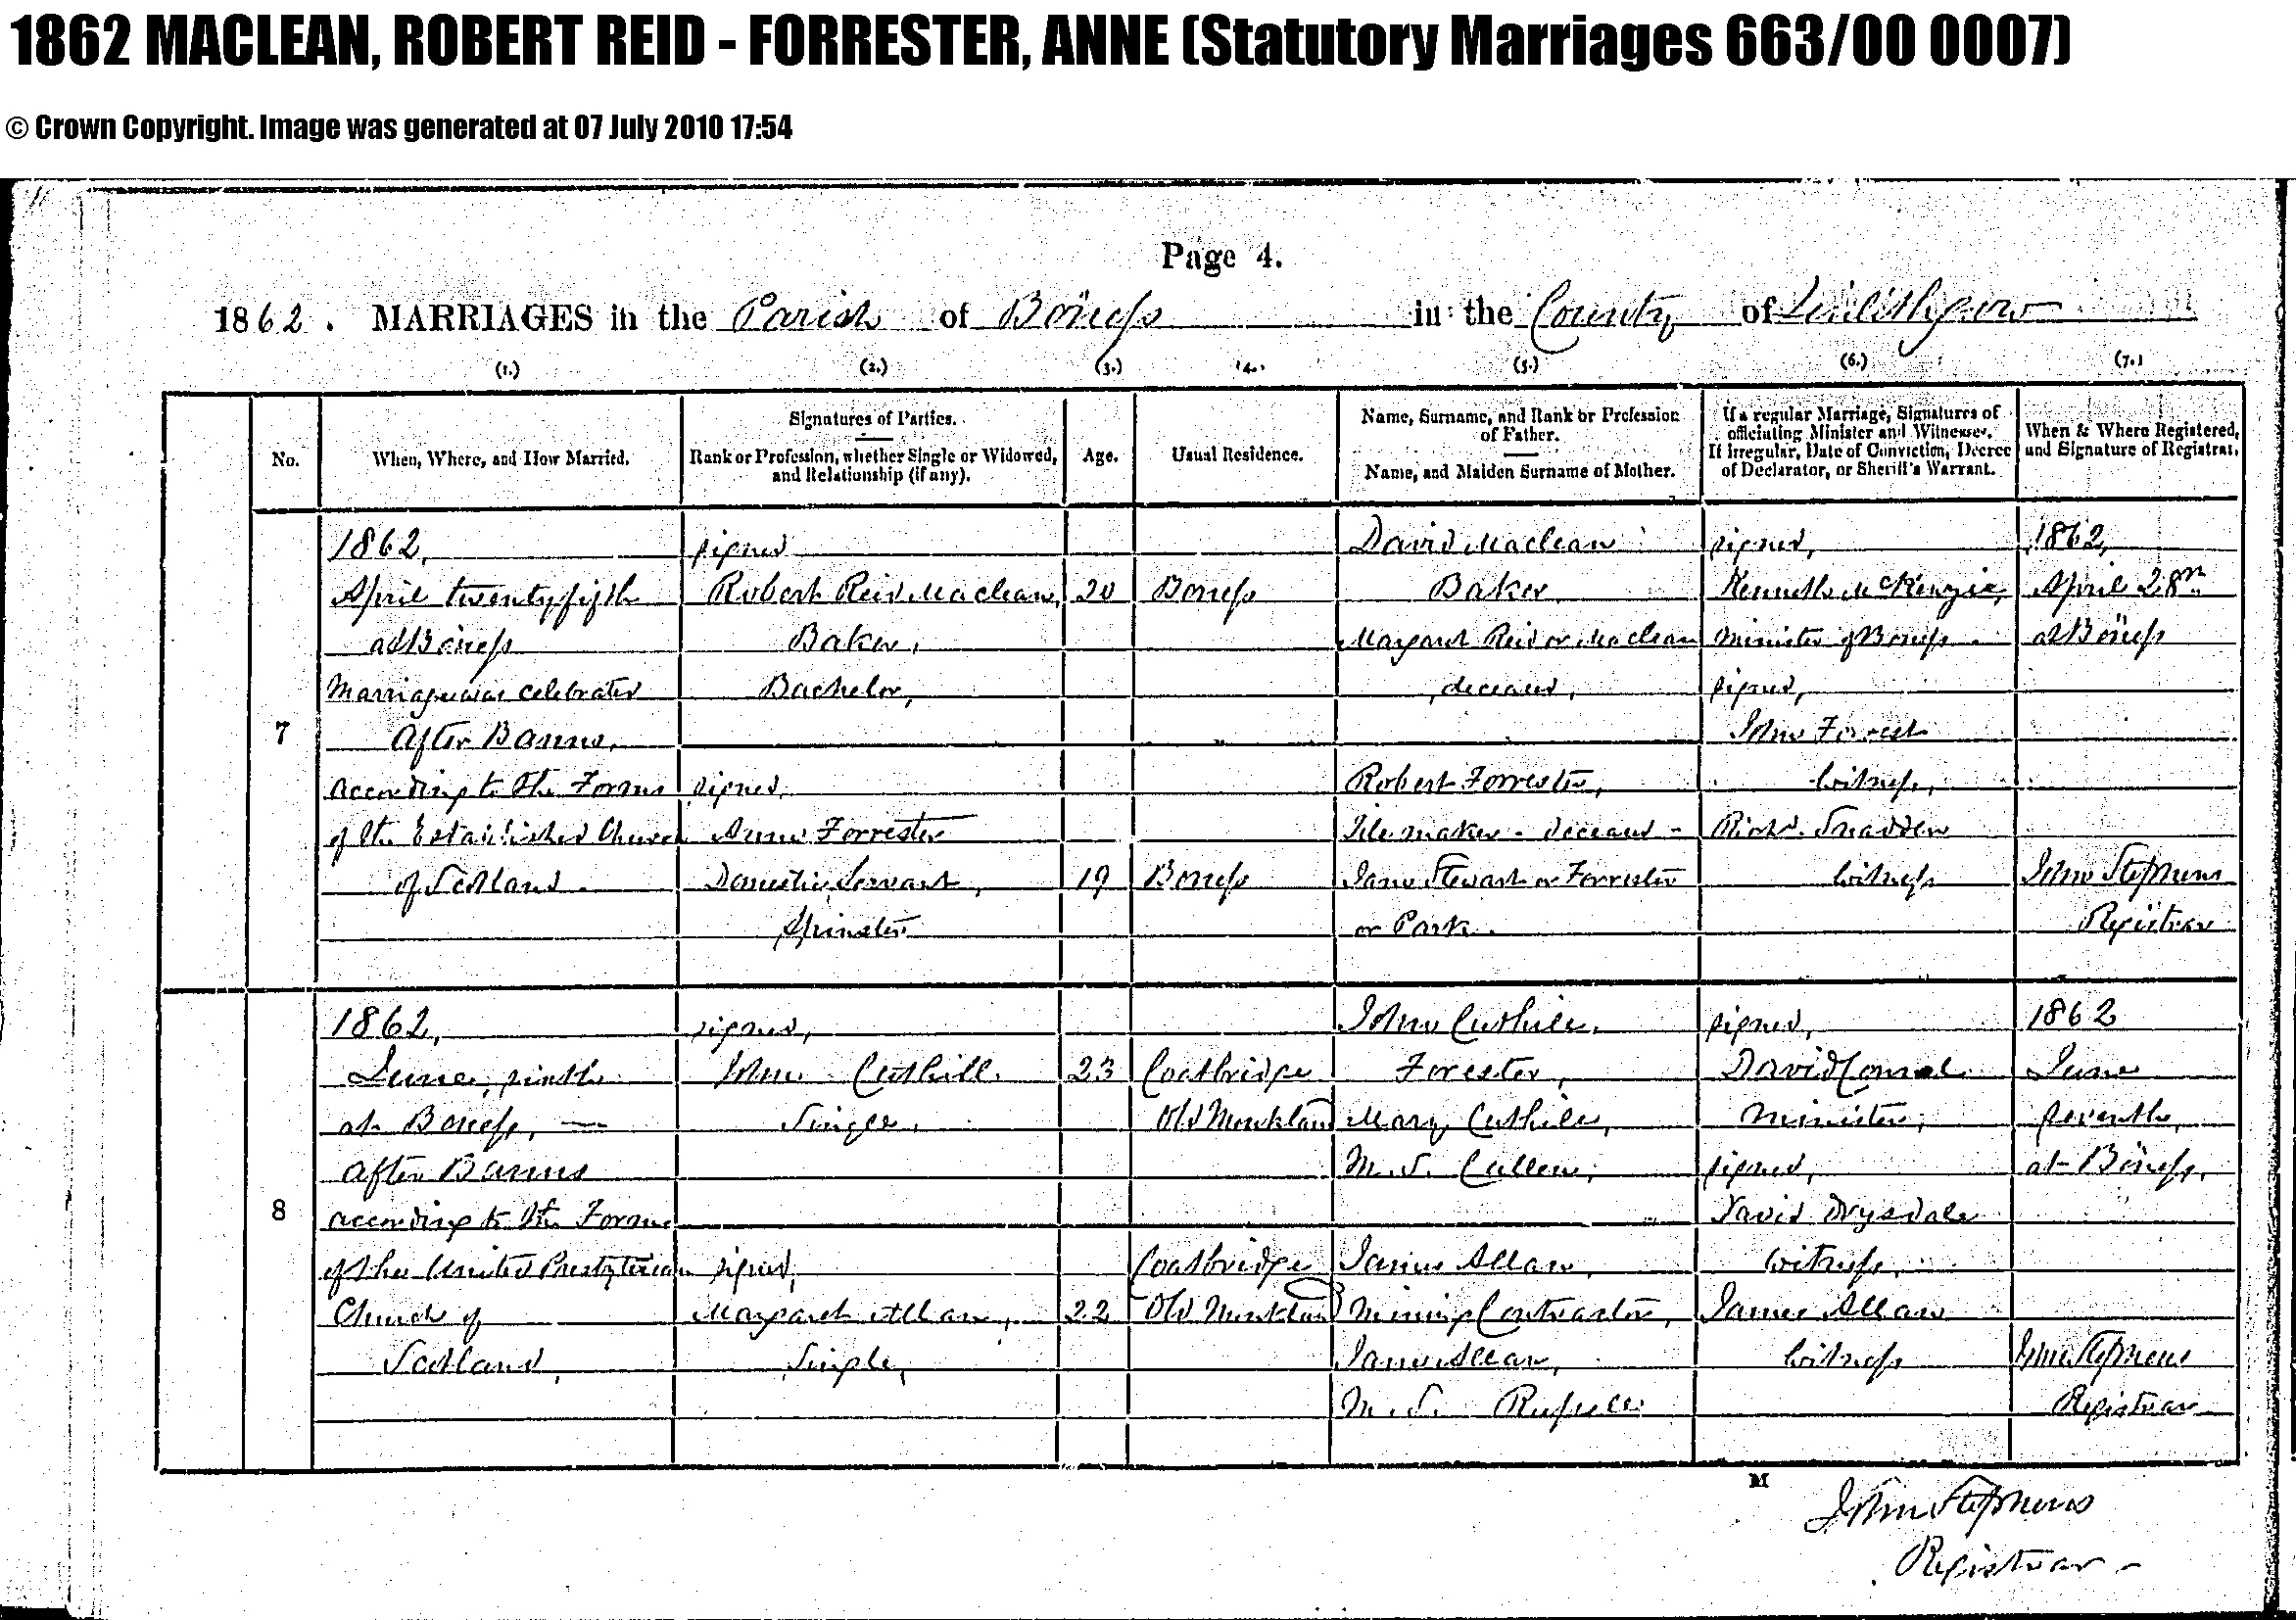 1862 MACLEAN, ROBERT REID - FORRESTER, ANNE (Statutory Marriages 663/00 0007)
© Crown Copyright. Image was generated at 07 July 2010 17:54
Page 4.
1862. MARRIAGES in the Parish of Boness in the County of Linlithgow
(1.) (2.) (3.) (4.) (5.) (6.) (7.)
No.
When, Where, and How Married.
Signatures of Parties.
Rank or Profession, whether Single or Widowed,
and Relationship (if any).
Age.
Usual Residence.
Name, Surname, and Rank or Profession
of Father.
Name, and Maiden Surname of Mother.
If a regular Marriage, Signatures of
officiating Minister and Witnesses.
If irregular, Date of Conviction, Decree
of Declarator, or Sheriff's Warrant.
When & Where Registered,
and Signature of Registrar.
7
1862,
April twentyfifth
at Boness
Marriage was celebrated
After Banns,
according to the Forms
of the Established Church
of Scotland.
signed
Robert Reid Maclean,
Baker,
Bachelor,
signed,
Anne Forrester
Domestic Servant,
Spinster
20
19
Boness
Boness
David Maclean
Baker
Margaret Reid or Maclean
deceased,
Robert Forrester,
Tile maker - deceased -
Jane Stewart or Forrester
or Park.
signed,
Kenneth McKenzie,
Minister of Boness.
signed,
John Forrest
witness,
Richd. Snadden
witness
1862,
April 28th
at Boness
John Stephens
Registrar
8
1862,
June, sixth
at Boness,
After Banns
according to the Forms
of the United Presbyterian
Church of
Scotland,
signed,
John Cuthill.
Single,
signed,
Margaret Allan,
Single,
23
22
Coatbridge
Old Monkland
Coatbridge
Old Monkland
John Cuthill,
Forester,
Mary Cuthill,
M.S. Cullen,
James Allan,
Mining Contractor,
Jane Allan,
M.S. Russell
signed,
David Connel
Minister,
signed,
David Drysdale
witness,
James Allan
witness
1862
June
seventh,
at Boness,
John Stephens
Registrar
M
John Stephens
Registrar -